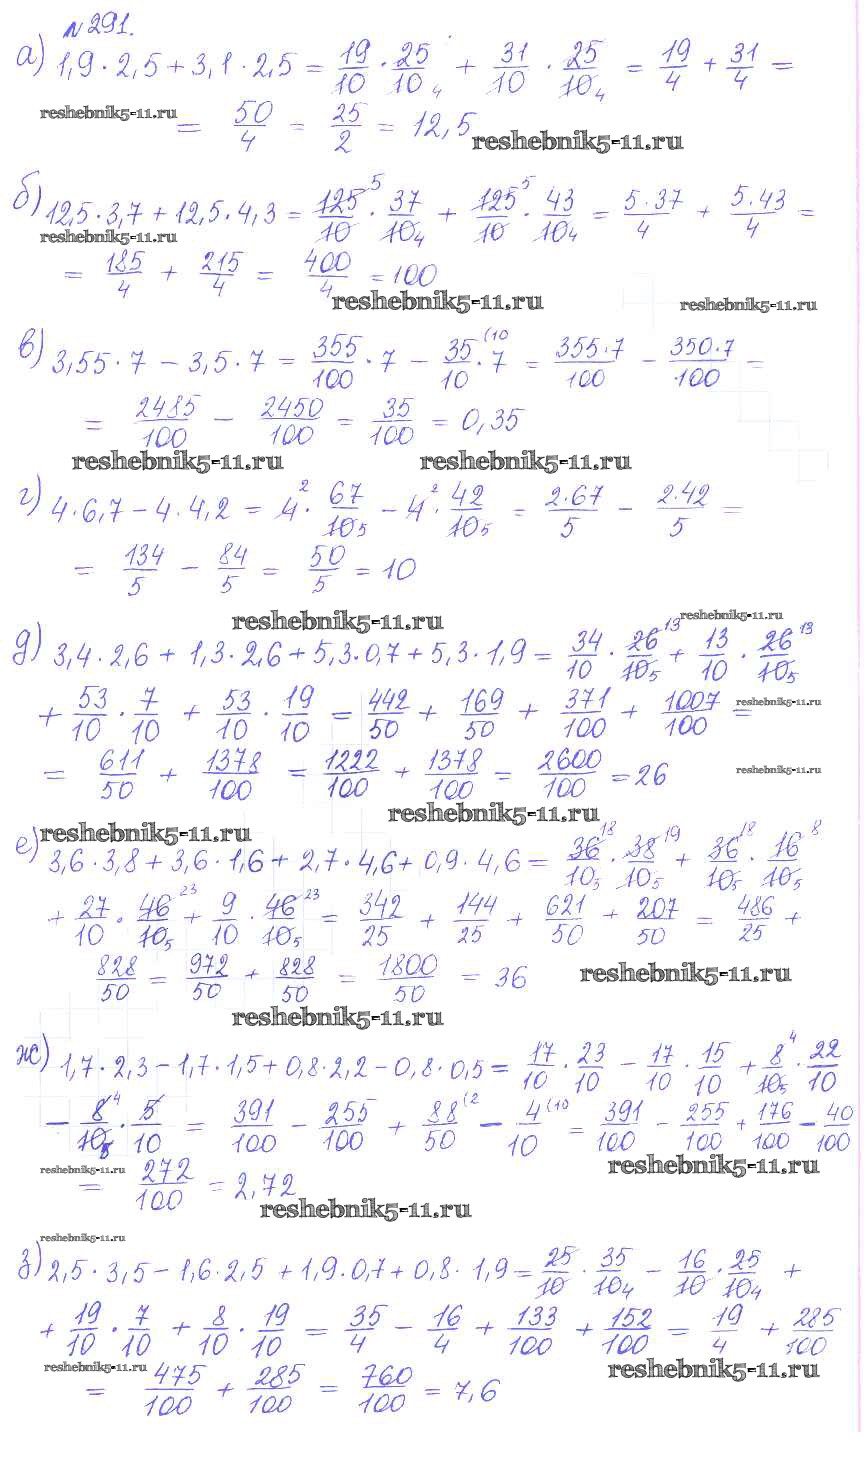 №291.
а) 1,9·2,5+3,1·2,5 = 19/10 · 25/10 4 + 31/10 · 25/10 4 = 19/4 + 31/4 =
reshebnik5-11.ru
= 50/4 = 25/2 = 12,5
reshebnik5-11.ru
б) 12,5·3,7+12,5·4,3 = 125 5/10 · 37/10 4 + 125 5/10 · 43/10 4 = 5·37/4 + 5·43/4 =
reshebnik5-11.ru
= 185/4 + 215/4 = 400/4 = 100
reshebnik5-11.ru reshebnik5-11.ru
в) 3,55·7 − 3,5·7 = 355/100 · 7 − 35/10 · 7 (10 = 355·7/100 − 350·7/100 =
= 2485/100 − 2450/100 = 35/100 = 0,35
reshebnik5-11.ru reshebnik5-11.ru
г) 4·6,7−4·4,2 = 4 2 · 67/10 5 − 4 2 · 42/10 5 = 2·67/5 − 2·42/5 =
= 134/5 − 84/5 = 50/5 = 10
reshebnik5-11.ru reshebnik5-11.ru
д) 3,4·2,6+1,3·2,6+5,3·0,7+5,3·1,9 = 34/10 · 26 13/10 5 + 13/10 · 26 13/10 5
+ 53/10 · 7/10 + 53/10 · 19/10 = 442/50 + 169/50 + 371/100 + 1007/100 =
reshebnik5-11.ru
= 611/50 + 1378/100 = 1222/100 + 1378/100 = 2600/100 = 26
reshebnik5-11.ru
reshebnik5-11.ru
reshebnik5-11.ru
е) 3,6·3,8+3,6·1,6+2,7·4,6+0,9·4,6 = 36 18/10 5 · 38 19/10 5 + 36 18/10 5 · 16 8/10 5
+ 27/10 · 46 23/10 5 + 9/10 · 46 23/10 5 = 342/25 + 144/25 + 621/50 + 207/50 = 486/25 +
828/50 = 972/50 + 828/50 = 1800/50 = 36
reshebnik5-11.ru
reshebnik5-11.ru
ж) 1,7·2,3−1,7·1,5+0,8·2,2−0,8·0,5 = 17/10 · 23/10 − 17/10 · 15/10 + 8 4/10 5 · 22/10
− 8 4/10 5 · 5/10 = 391/100 − 255/100 + 88 (2/50 − 4 (10/10 = 391/100 − 255/100 + 176/100 − 40/100
reshebnik5-11.ru reshebnik5-11.ru
= 272/100 = 2,72
reshebnik5-11.ru
reshebnik5-11.ru
з) 2,5·3,5−1,6·2,5+1,9·0,7+0,8·1,9 = 25/10 · 35/10 4 − 16/10 · 25/10 4 +
+ 19/10 · 7/10 + 8/10 · 19/10 = 35/4 − 16/4 + 133/100 + 152/100 = 19/4 + 285/100
reshebnik5-11.ru reshebnik5-11.ru
= 475/100 + 285/100 = 760/100 = 7,6